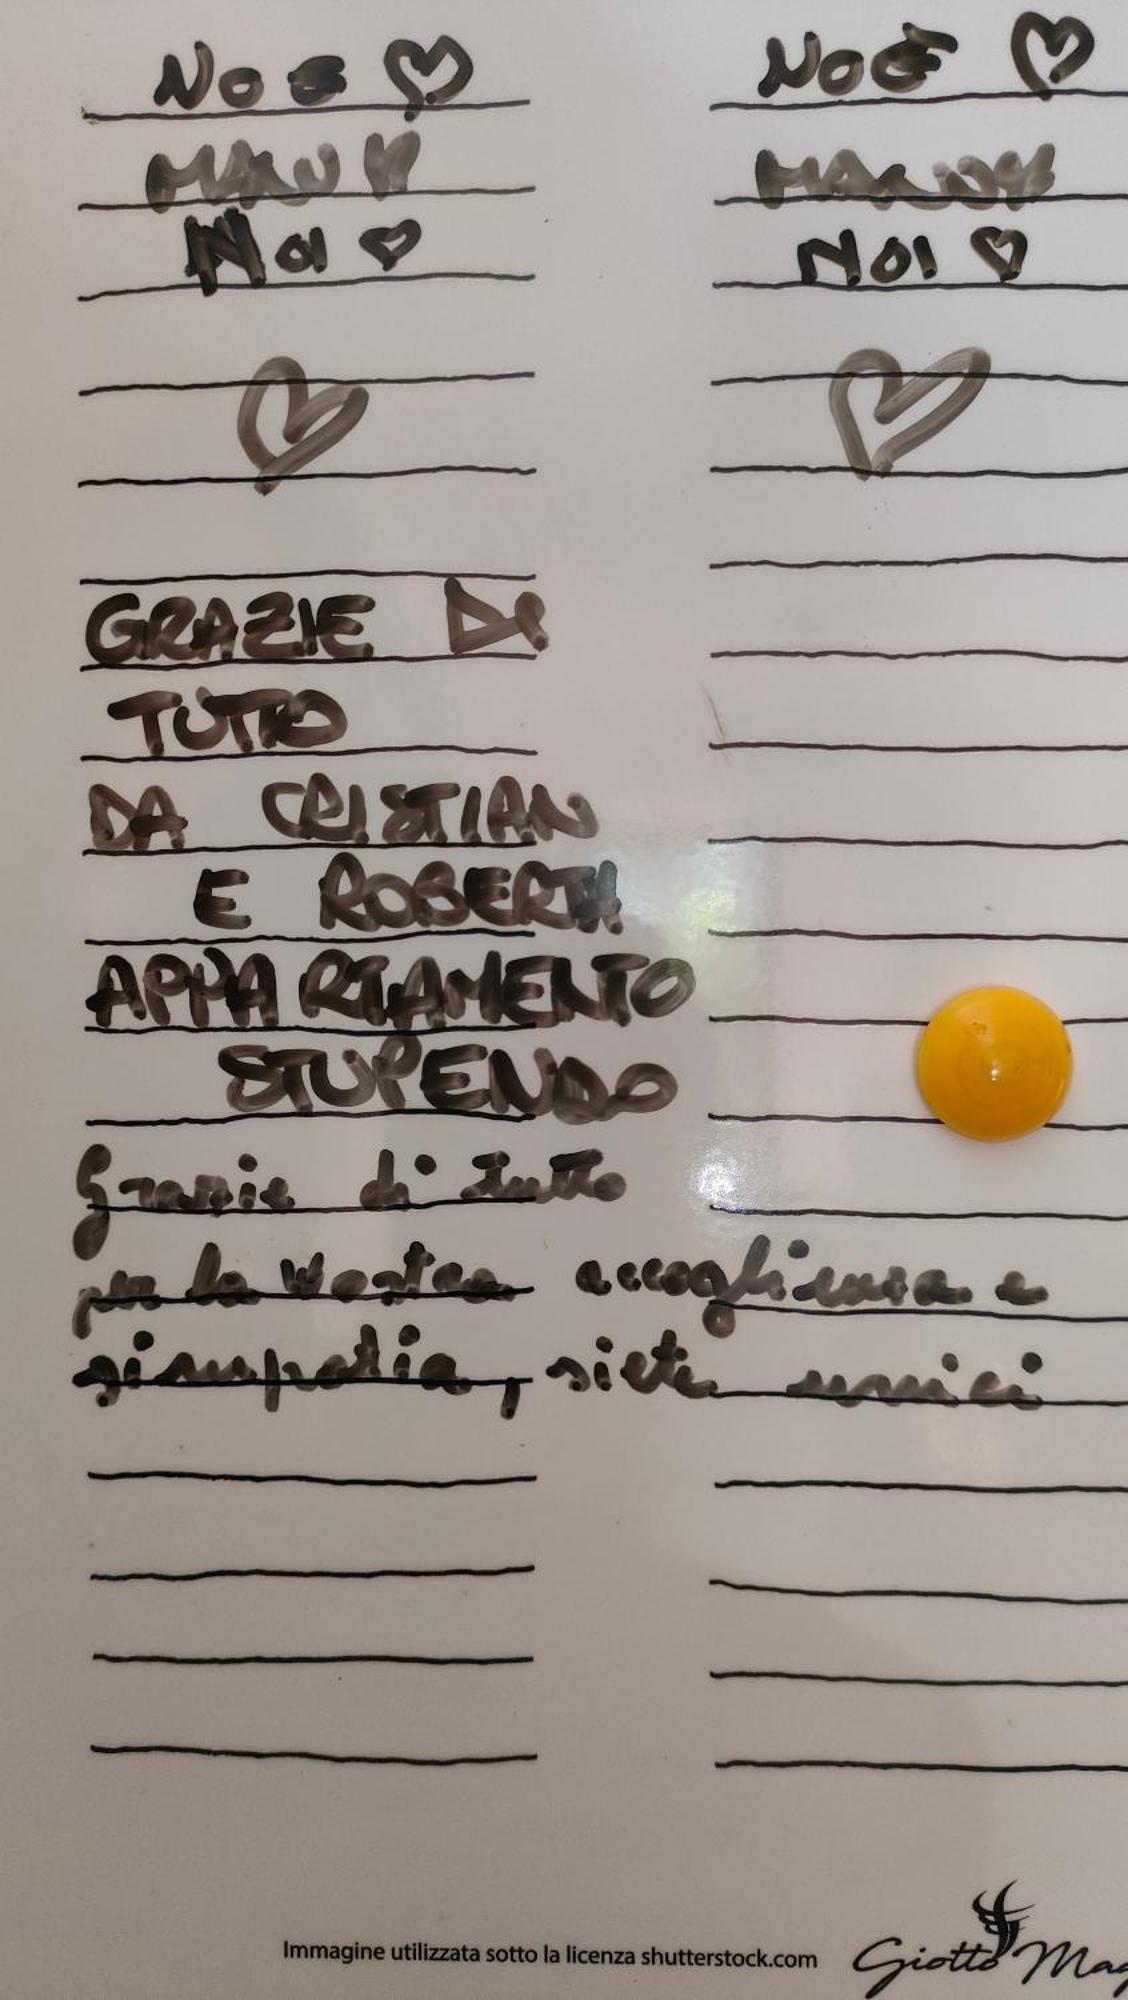 NOE NOÈ
MANU
NOI NOI
GRAZIE DI
TUTTO
DA CRISTIAN
E ROBERTA
APPARTAMENTO
STUPENDO
Grazie di tutto
per la vostra accoglienza e
simpatia, siete unici
Immagine utilizzata sotto la licenza shutterstock.com Giotto